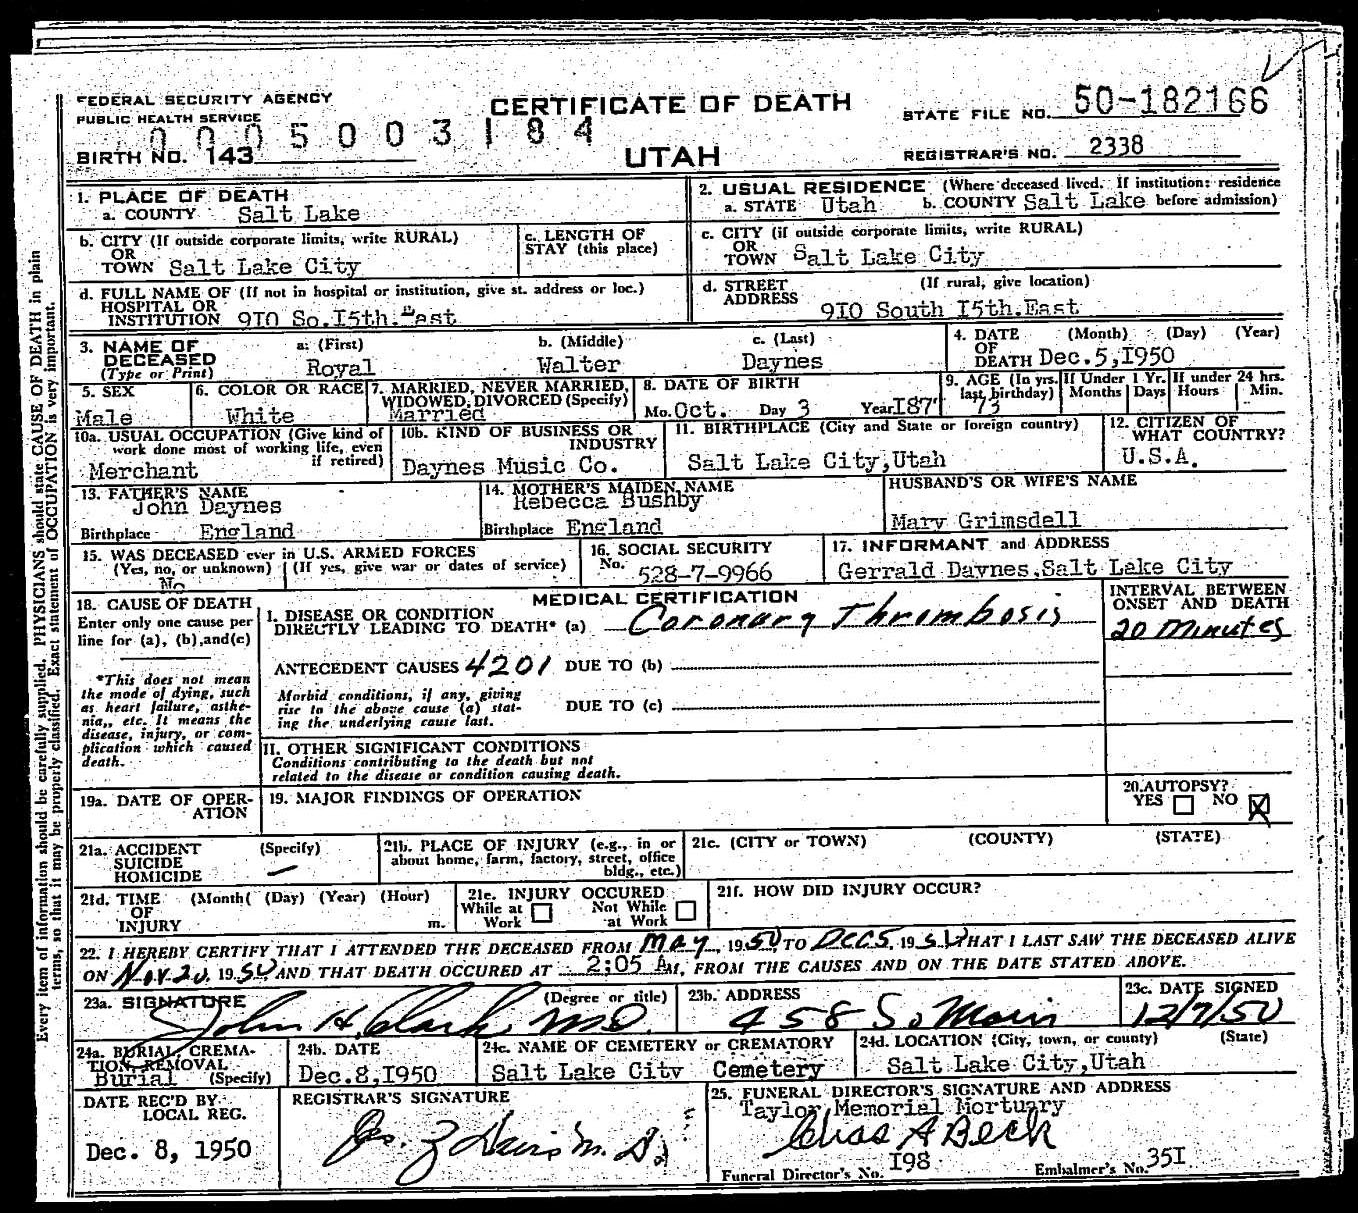 FEDERAL SECURITY AGENCY
PUBLIC HEALTH SERVICE
CERTIFICATE OF DEATH
STATE FILE NO. 50-182166
0005003184
BIRTH NO. 143
UTAH
REGISTRAR'S NO. 2338
1. PLACE OF DEATH
a. COUNTY Salt Lake
2. USUAL RESIDENCE (Where deceased lived. If institution: residence
a. STATE Utah b. COUNTY Salt Lake before admission)
b. CITY (If outside corporate limits, write RURAL)
OR
TOWN Salt Lake City
c. LENGTH OF
STAY (this place)
c. CITY (if outside corporate limits, write RURAL)
OR
TOWN Salt Lake City
d. FULL NAME OF (If not in hospital or institution, give st. address or loc.)
HOSPITAL OR
INSTITUTION 910 So. I5th. East
d. STREET (If rural, give location)
ADDRESS
910 South I5th. East
3. NAME OF
DECEASED
(Type or Print)
a. (First) b. (Middle) c. (Last)
Royal Walter Daynes
4. DATE (Month) (Day) (Year)
OF
DEATH Dec.5,I950
5. SEX
Male
6. COLOR OR RACE
White
7. MARRIED, NEVER MARRIED,
WIDOWED, DIVORCED (Specify)
Married
8. DATE OF BIRTH
Mo. Oct. Day 3 Year I87
9. AGE (In yrs.
last birthday)
73
If Under 1 Yr.
Months Days
If under 24 hrs.
Hours Min.
10a. USUAL OCCUPATION (Give kind of
work done most of working life, even
if retired)
Merchant
10b. KIND OF BUSINESS OR
INDUSTRY
Daynes Music Co.
11. BIRTHPLACE (City and State or foreign country)
Salt Lake City,Utah
12. CITIZEN OF
WHAT COUNTRY?
U.S.A.
13. FATHER'S NAME
John Daynes
Birthplace England
14. MOTHER'S MAIDEN NAME
Rebecca Bushby
Birthplace England
HUSBAND'S OR WIFE'S NAME
Mary Grimsdell
15. WAS DECEASED ever in U.S. ARMED FORCES
(Yes, no, or unknown) (If yes, give war or dates of service)
No
16. SOCIAL SECURITY
No. 528-7-9966
17. INFORMANT and ADDRESS
Gerrald Daynes,Salt Lake City
18. CAUSE OF DEATH
Enter only one cause per
line for (a), (b), and(c)
*This does not mean
the mode of dying, such
as heart failure, asthe-
nia,, etc. It means the
disease, injury, or com-
plication which caused
death.
MEDICAL CERTIFICATION
I. DISEASE OR CONDITION
DIRECTLY LEADING TO DEATH* (a) Coronary Thrombosis
INTERVAL BETWEEN
ONSET AND DEATH
20 Minutes
ANTECEDENT CAUSES 4201 DUE TO (b)
Morbid conditions, if any, giving
rise to the above cause (a) stat-
ing the underlying cause last.
DUE TO (c)
II. OTHER SIGNIFICANT CONDITIONS
Conditions contributing to the death but not
related to the disease or condition causing death.
19a. DATE OF OPER-
ATION
19. MAJOR FINDINGS OF OPERATION
20. AUTOPSY?
YES NO X
21a. ACCIDENT (Specify)
SUICIDE
HOMICIDE —
21b. PLACE OF INJURY (e.g., in or
about home, farm, factory, street, office
bldg., etc.)
21c. (CITY or TOWN) (COUNTY) (STATE)
21d. TIME (Month( (Day) (Year) (Hour)
OF
INJURY m.
21e. INJURY OCCURED
While at Work Not While at Work
21f. HOW DID INJURY OCCUR?
22. I HEREBY CERTIFY THAT I ATTENDED THE DECEASED FROM May, 1950, TO Dec 5, 1950 THAT I LAST SAW THE DECEASED ALIVE
ON Nov. 20, 1950 AND THAT DEATH OCCURED AT 2:05 AM, FROM THE CAUSES AND ON THE DATE STATED ABOVE.
23a. SIGNATURE (Degree or title)
John H. Clark M.D.
23b. ADDRESS
458 So Main
23c. DATE SIGNED
12/7/50
24a. BURIAL, CREMA-
TION, REMOVAL
Burial (Specify)
24b. DATE
Dec.8,I950
24c. NAME OF CEMETERY or CREMATORY
Salt Lake City Cemetery
24d. LOCATION (City, town, or county) (State)
Salt Lake City,Utah
DATE REC'D BY
LOCAL REG.
Dec. 8, 1950
REGISTRAR'S SIGNATURE
25. FUNERAL DIRECTOR'S SIGNATURE AND ADDRESS
Taylor Memorial Mortuary
Chas A Beck
Funeral Director's No. I98 Embalmer's No. 35I
Every item of information should be carefully supplied. PHYSICIANS should state CAUSE OF DEATH in plain
terms, so that it may be properly classified. Exact statement of OCCUPATION is very important.